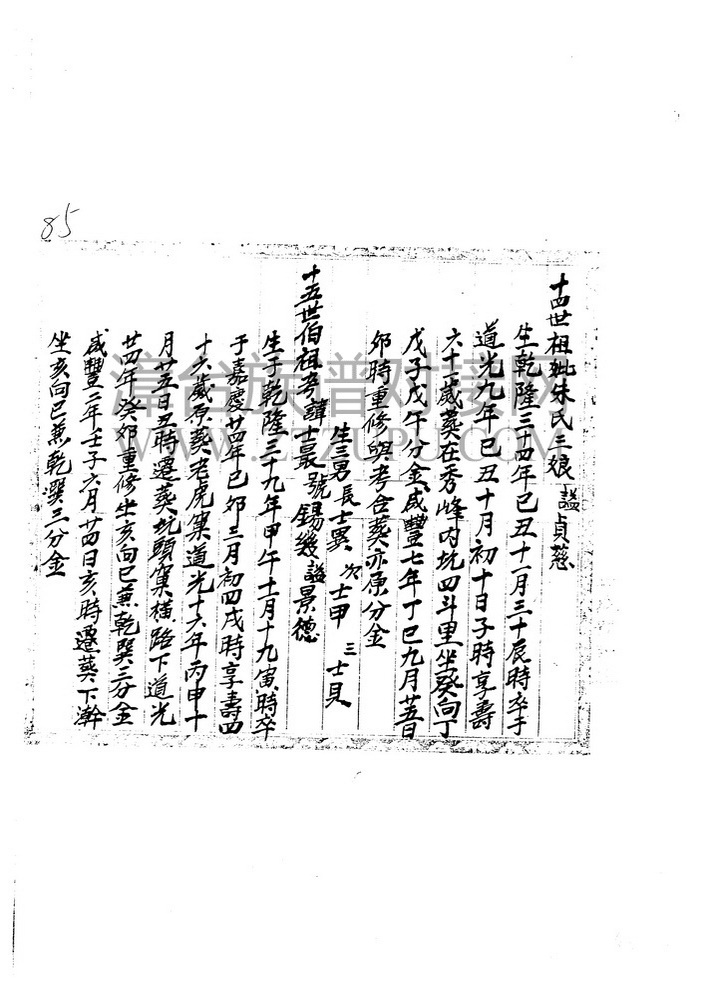 85
十四世祖妣朱氏三娘 諡貞慈
生乾隆三十四年己丑十一月三十辰時卒于
道光九年己丑十月初十日子時享壽
六十一歲葬在秀峰内坑四斗里坐癸向丁
戊子戊午分金咸豐七年丁巳九月廿五日
卯時重修與考合葵亦原分金
生三男長士 次士甲 三士貝
十五世伯祖考諱士最號錫幾諡景德
生于乾隆三十九年甲午十一月十九寅時卒
于嘉慶廿四年己卯三月初四戌時享壽四
十六歲原葵老虎窠道光十六年丙申十
月廿五日丑時遷葵坑頭窠橫路下道光
廿四年癸卯重修坐亥向巳兼乾巽三分金
咸豐二年壬子六月廿四日亥時遷葵下
坐亥向巳兼乾巽三分金
漳台族谱对接网
WWW.ZTZUPU.COM